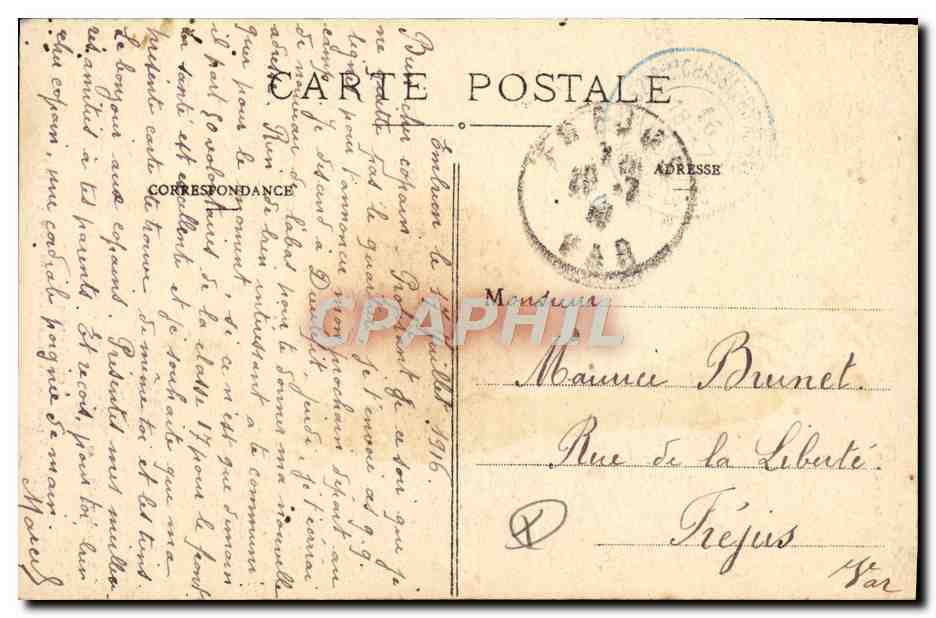 CARTE POSTALE
CORRESPONDANCE
ADRESSE
FREJUS
VAR
CPAPHIL
Monsieur
Maurice Brunet.
Rue de la Liberté.
Fréjus
Var
Embrun le 17 Juillet 1916.
Bien cher copain. Profitant de ce soir que je
ne suis pas de garde je t'envoie
lignes pour t'annoncer mon prochain départ au
camp. Je descend à jeudi, je t'écrirai
de nouveau de labas pour te donner ma nouvelle
adresse. Rien de bien intéressant à te communi
quer pour le moment, si ce n'est que demain
il part 50 volontaires de la classe 17 pour le front
La santé est excellente et je souhaite que ma
présente carte te trouve de même toi et les tiens
Le bonjour aux copains. Présentes mes meilleu
res amitiés à tes parents. Et reçois, pour toi bien
cher copain, une cordiale poignée de main
Marcel